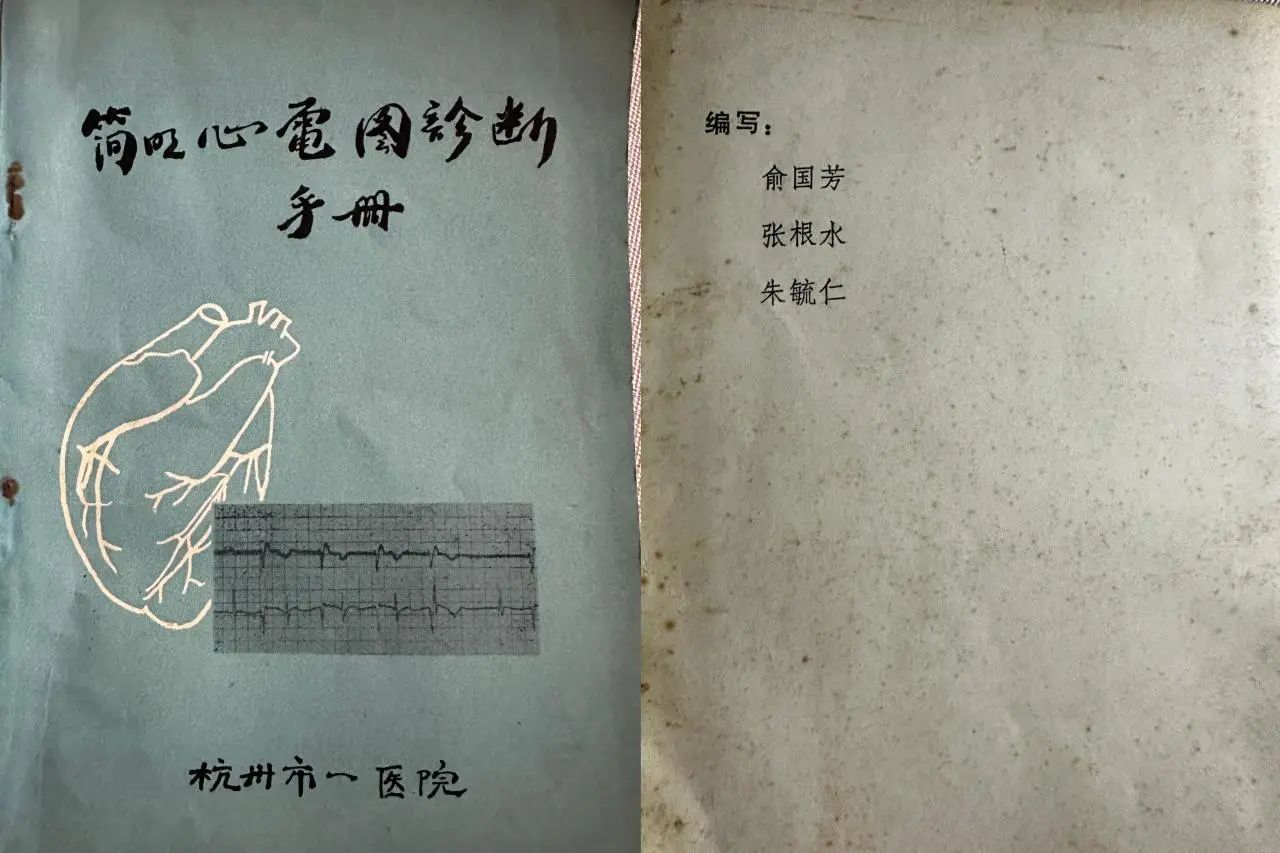 简明心電图診断
手册
杭州市一医院
编写：
俞国芳
张根水
朱毓仁